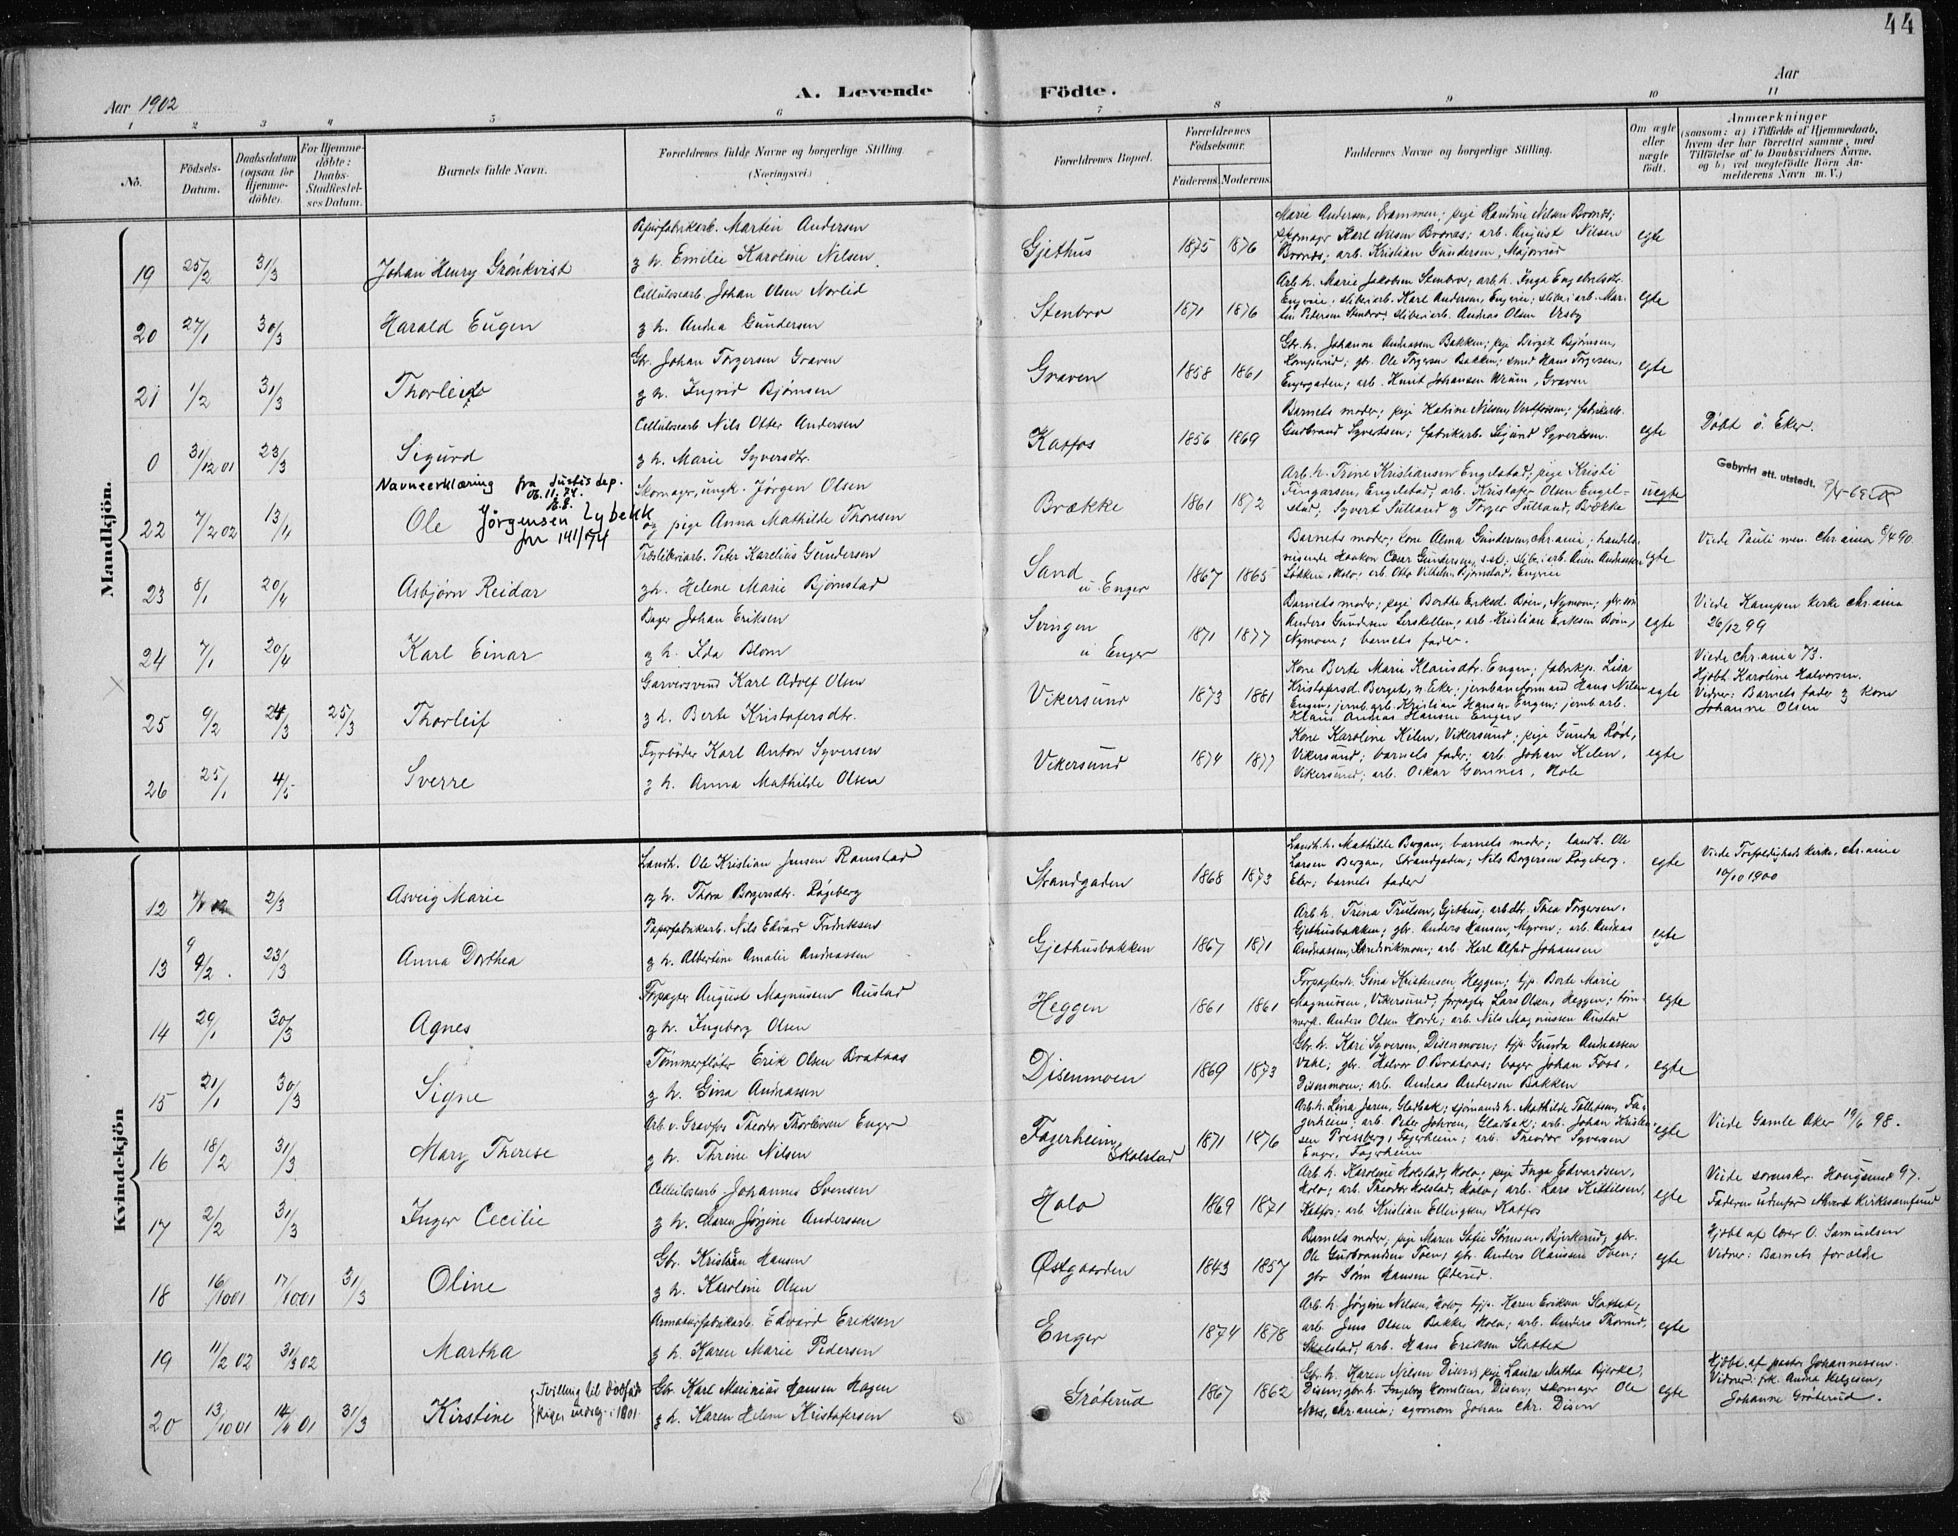 44
Aar 1902
A. Levende
Födte.
Aar
1 2 3 4 5 6 7 8 9 10 11
No.
Födsels-Datum.
Daabsdatum (ogsaa for Hjemme-döbte).
For Hjemme-döbte: Daabs-Stadfæstel-ses Datum.
Barnets fulde Navn.
Forældrenes fulde Navne og borgerlige Stilling. (Næringsvei.)
Forældrenes Bopæl.
Forældrenes Födselsaar.
Faderens. Moderens.
Faddernes Navne og borgerlige Stilling.
Om ægte eller uægte födt.
Anmærkninger (saasom: a) i Tilfælde af Hjemmedaab, hvem der har forrettet samme, med Tilföielse af to Daabsvidners Navne, og b) ved uægtefödte Börn An-melderens Navn m. V.)
Mandkjön.
19 25/2 31/3 Johan Henry Grönkvist
Papirfabrikarb. Martin Andersen
g h. Emilie Karoline Nilsen
Gjethus 1875 1876
Marie Andersen, Drammen; pige Randine Nilsen Brønds;
Skomager Karl Nilsen Brønds; arb. August Nilsen
Brønds; arb. Kristian Gundersen, Majorrud
egte
20 27/1 30/3 Harald Eugen
Cellulosearb. Johan Olsen Norlid
g h. Andrea Gundersen
Stenbro 1871 1876
Arb. h. Marie Jakobsen Stenbro; arb. h. Inga Engebretsdtr.
Engvie; sliberiarb. Karl Andersen, Engvie; sliberiarb. Mar-
tin Petersen Stenbro; sliberiarb. Andreas Olsen
egte
21 1/2 31/3 Thorleif
Gbr. Johan Torgersen Graven
g h. Ingrid Bjørnsen
Graven 1858 1861
Gbr. h. Johanne Andreassen Bakken; pige Berget Bjørnsen,
Komperud; gbr. Ole Torgersen Bakken; smed Hans Torgersen,
Engergaden; arb. Knut Johansen Wrum, Graven
egte
0 31/12 01 23/3 Sigurd
Cellulosearb Nils Otter Andersen
g h. Marie Syversdtr.
Katfos 1856 1869
Barnets moder; pige Katrine Nilsen, Vestfossen; fabrikarb.
Gudbrand Syvertsen; fabrikarb. Sigurd Syvertsen.
egte
Døbt ö. Eker.
22 7/2 02 13/4 Ole Jörgensen Lybekk
Navneerklæring fra Justis dep.
06.11.74.
jnr 141/74
Skomager, ungk. Jörgen Olsen
og pige Anna Mathilde Thoresen
Brække 1861 1872
Arb. h. Trine Kristiansen Engelstad; pige Kristi
Fingarsen, Engelstad; arb. Kristofer Olsen Engel-
stad; Syvert Sulland og Torger Sulland, Brække
uegte
Gebyrfri att. utstedt.
23 8/1 20/4 Asbjørn Reidar
Træsliberiarb. Peter Karelius Gundersen
g h. Helene Marie Bjørnstad
Sand u. Enger 1867 1865
Barnets moder; kone Alma Gundersen, Chr.ania; handels-
reisende Haakon Gundersen, sst; sliberiarb. Andreassen
Løkken, Holo; arb. Otto Vilhelm Bjørnstad, Engvie
egte
Viede Pauli men. Chr.ania 6/4 90.
24 7/1 20/4 Karl Einar
Bager Johan Eriksen
g h. Ida Blom
Svingen u Enger 1871 1877
Barnets moder; pige Berthe Eriksd. Böen, Nymoen; gbr. søn
Anders Gundersen Lerskallen; arb. Kristian Eriksen Böen,
Nymoen; barnets fader.
egte
Viede Kampen kirke Chr.ania
26/12 99
25 9/2 24/3 25/3 Thorleif
Garversvend Karl Adolf Olsen
g h. Berte Kristofersdtr.
Vikersund 1873 1881
Kone Berte Marie Klausdtr. Engen; fabrikp. Lisa
Kristofersd. Berget, n. Eker; jernbaneformand Hans Nilsen
Engen; jernb. arb. Kristian Hansen Engen; jernb. arb.
Klaus Andreas Hansen Engen
egte
Viede Chr.ania /3.
Hjdbt. Karoline Halvorsen.
Vidner: Barnets fader og kone
Johanne Olsen
26 25/1 4/5 Sverre
Fyrbøder Karl Anton Syversen
g h. Anna Mathilde Olsen
Vikersund 1874 1877
Kone Karoline Kilen, Vikersund; pige Gunda Röd,
Vikersund; barnets fader; arb Johan Kilen,
Vikersund; arb. Oskar Gomnes, Hole
egte
Kvindekjön
12 2/3 Asveig Marie
Landh. Ole Kristian Jensen Ramstad
og h. Thora Borgersdtr. Røgeberg
Strandgaden 1868 1873
Landh. h. Mathilde Bergan; barnets moder; landh. Ole
Larsen Bergan, Strandgaden; Nils Borgersen Røgeberg,
Eker; barnets fader
egte
Viede Trefoldigheds kirke, Chr.ania
10/10 1900
13 9/2 23/3 Anna Dorthea
Papirfabrikarb. Nils Edvard Fredriksen
g h. Albertine Amalie Andreassen
Gjethusbakken 1867 1871
Arb. h. Trina Trulsen, Gjethus; arbdtr. Thea Torgersen,
Gjethusbakken; gbr. Anders Hansen, Myren; arb. Andreas
Andreassen, Skredvikmoen; arb. Karl Alfred Johansen
egte
14 29/1 30/3 Agnes
Forpagter August Magnussen Austad
g h. Ingeborg Olsen
Heggen 1861 1861
Forpagterh. Gina Kristensen, Heggen; tjp. Berte Marie
Magnussen, Vikersund; forpagter Lars Olsen, Heggen; töm-
merh. Anders Olsen Hovde; arb. Nils Magnussen Austad
egte
15 21/1 30/3 Signe
Tømmerfløter Erik Olsen Brataas
g h. Gina Andreassen
Disenmoen 1869 1873
Gbr. h. Kari Syversen, Disenmoen; tjp. Gunda Andreassen
Vahl; gbr. Halvor O. Brataas; bager Johan Foss,
Disenmoen; arb. Andreas Andersen Bakken
egte
16 18/2 31/3 Mary Therese
Arb. v. Gravfos Theodor Thorlevsen Enger
g h. Thrine Nilsen
Fagerheim, Skalstad 1871 1876
Arb. h. Lina Jaren, Gladbak; sjømands h. Mathilde Tollefsen, Fa-
gerheim; arb. Peter Johren, Gladbak; arb. Johan Kristen-
sen Pressberg, Fagerheim; arb. Theodor Syversen
Enger, Fagerheim
egte
Viede Gamle Aker 19/6 98.
17 2/2 31/3 Inger Cecilie
Cellulosearb Johannes Svensen
g h. Maren Jørgine Anderssen
Holo 1869 1871
Arb h. Karoline Holstad, Holo; pige Inga Edvardsen,
Holo; arb. Theodor Holstad, Holo; arb. Lars Kittilsen,
Katfos; arb Kristian Ellingsen Katfos
egte
Viede Hougsund 97.
Faderen udenfor Kirkesamfund
18 16/10 01 17/10 01 31/3 Oline
Gbr. Kristian Hansen
g h. Karoline Olsen
Østgaarden 1843 1857
Barnets moder; pige Maren Sofie Sørensen, Bjerkerud; gbr.
Ole Gudbrandsen Toen; gbr. Anders Olaussen Toen;
gbr Sørn Hansen Øderud.
egte
Hjdbt af lærer O. Samuelsen
Vidner: Barnets forældre
19 11/2 02 31/3 02 Martha
Armaturfabrikarb. Edvard Eriksen
g h. Karen Marie Pedersen
Enger 1874 1878
Arb. h. Jørgine Nilsen, Holo; tjp. Karen Eriksen Slattet;
arb. Jens Olsen Bakke, Holo; arb. Anders Thorrud,
Skalstad, arb. Hans Eriksen Slattet
egte
20 13/10 01 31/3 Kirstine
Tvilling til Dødfød
Piger indreg. i 1901.
Gbr. Karl Mathias Hansen Hagen
g h. Karen Helene Kristofersen
Grøterud 1867 1862
Gbr. h. Karen Nilsen Disen; pige Laura Mathea Bjerke,
Disen; gbr. h. Ingeborg Kornelius, Disen; skomager Ole
Næss, Chr.ania; agronom Johan Chr. Disen
egte
Hjdbt. af pastor Johannessen.
Vidner: frk. Anna Helgesen,
Johanne Grøterud.